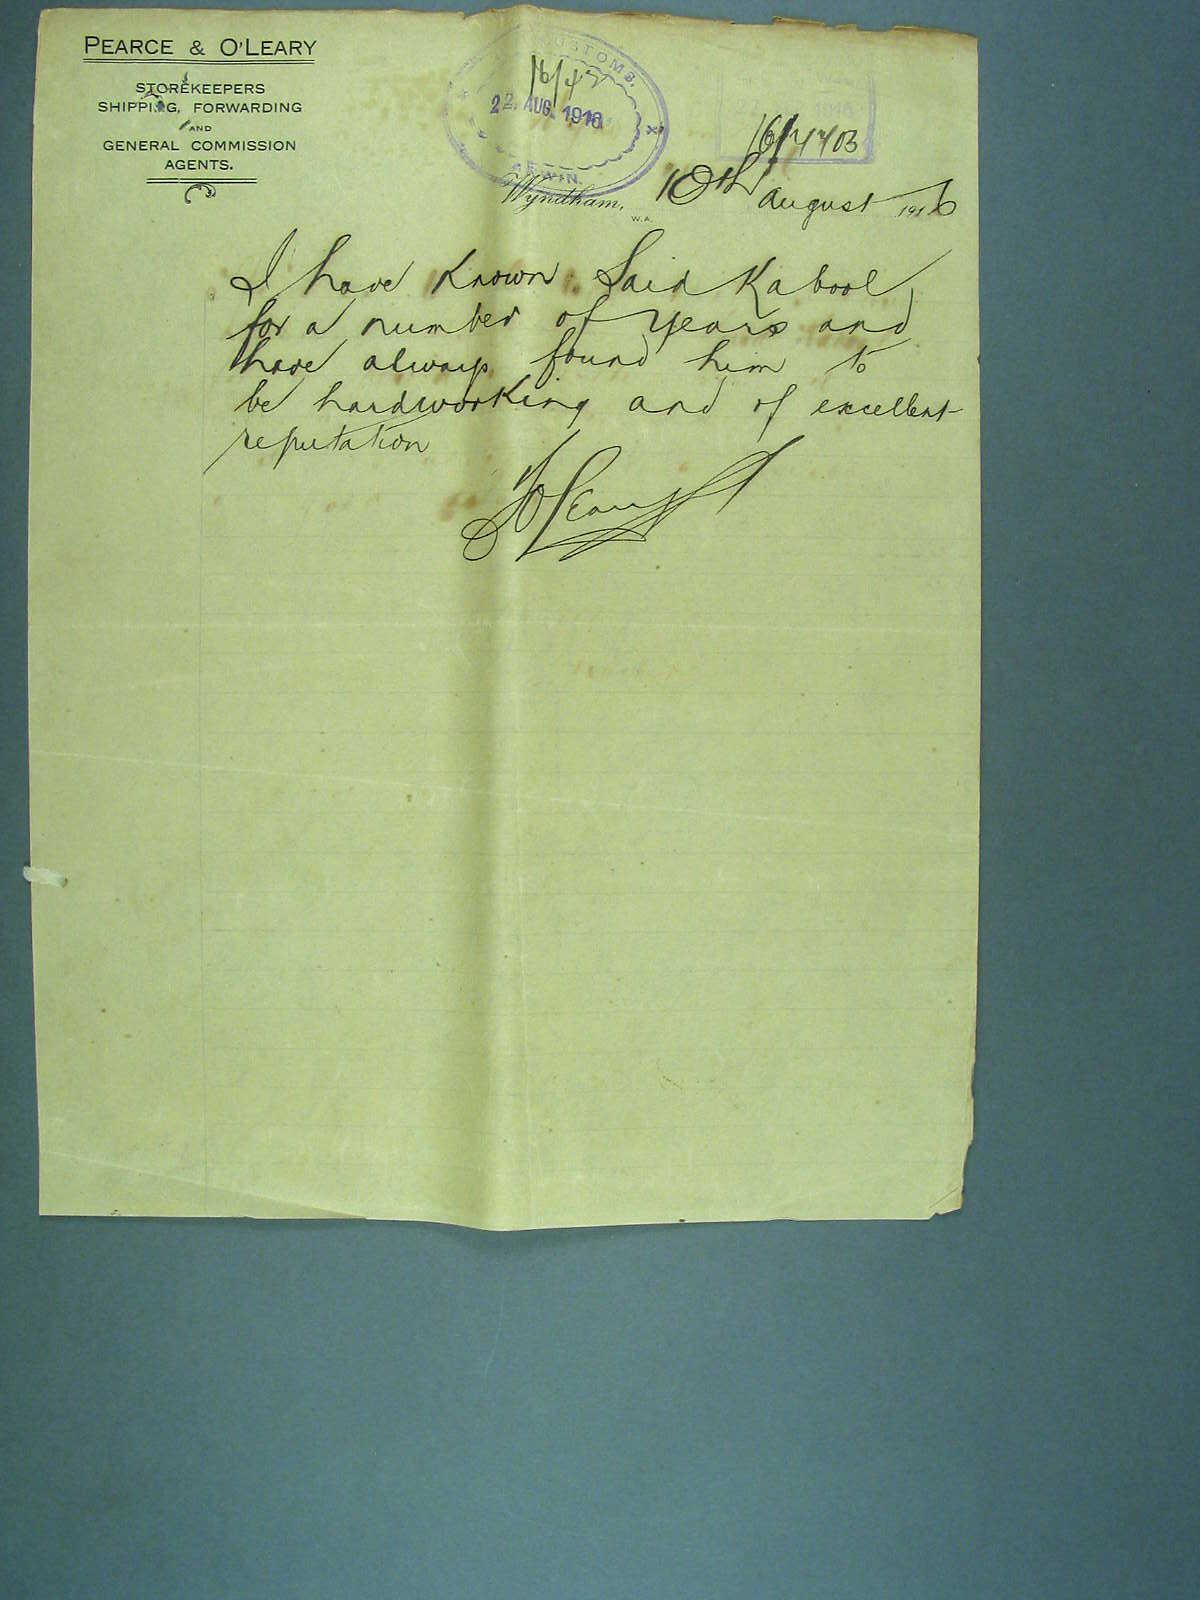 PEARCE & O'LEARY
STOREKEEPERS
SHIPPING, FORWARDING
AND
GENERAL COMMISSION
AGENTS.
CUSTOMS.
16/42
22. AUG. 1916
16/4403
Wyndham, W.A. 10th August 1916
I have known Said Kabool
for a number of years and
have always found him to
be hardworking and of excellent
reputation